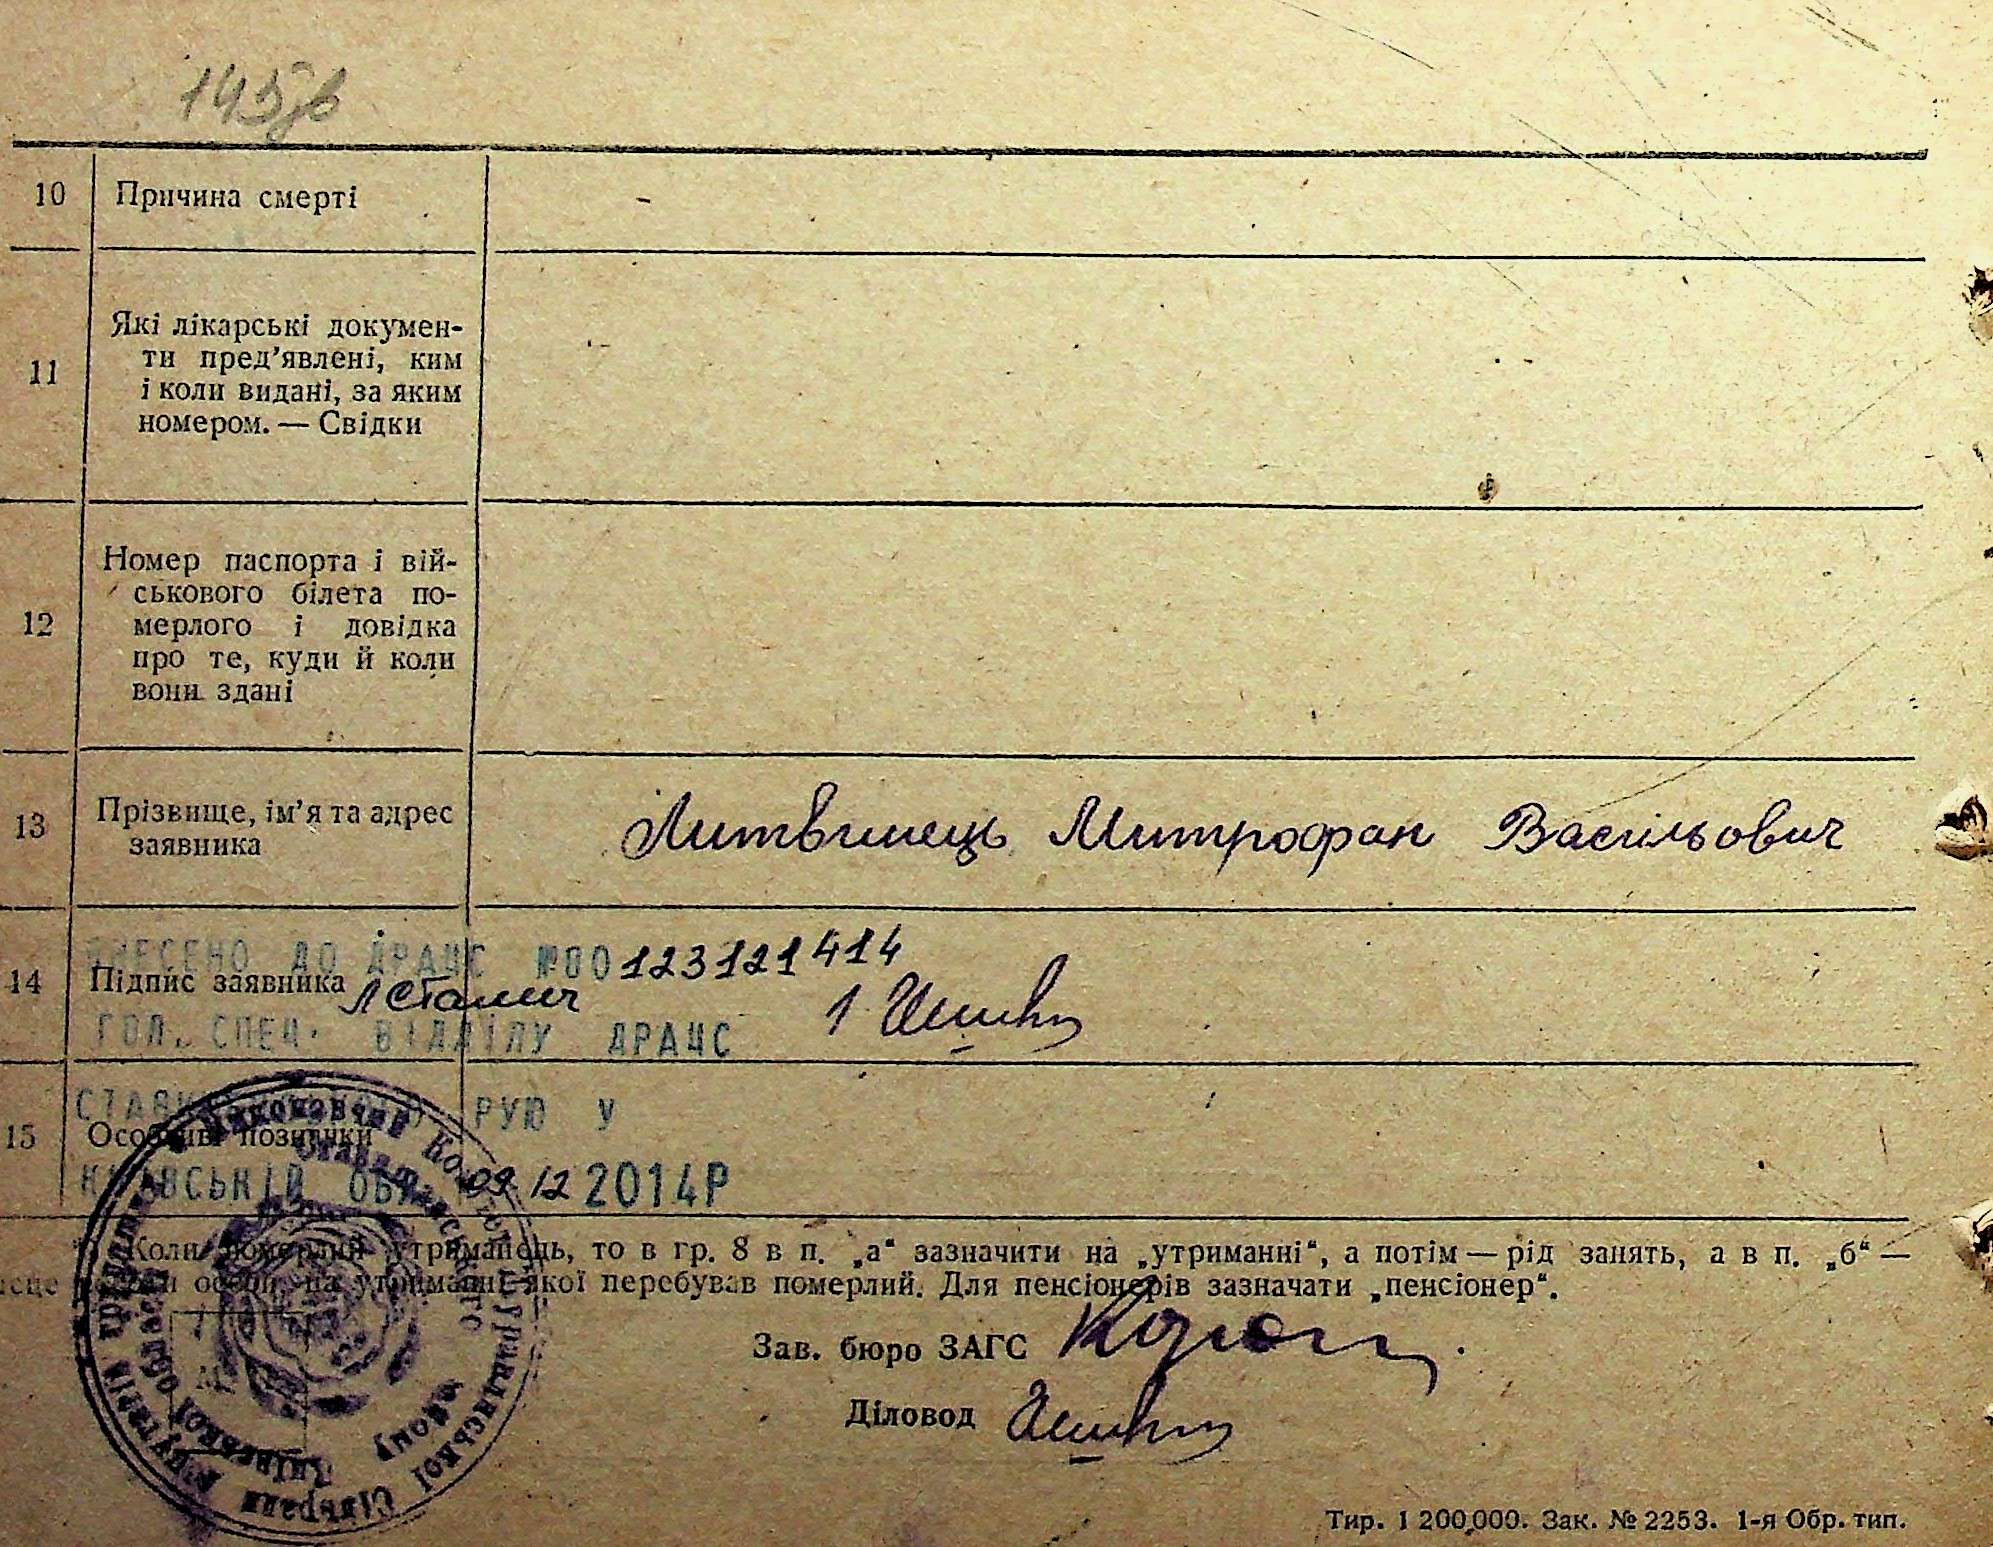 145зв
10 Причина смерті -
11 Які лікарські докумен-
ти пред'явлені, ким
і коли видані, за яким
номером. — Свідки
12 Номер паспорта і вій-
ськового білета по-
мерлого і довідка
про те, куди й коли
вони здані
13 Прізвище, ім'я та адрес
заявника
Литвинець Митрофан Васільович
ВНЕСЕНО ДО ДРАЦС №00123121414
14 Підпис заявника
ГОЛ. СПЕЦ. ВІДДІЛУ ДРАЦС
РУЮ У
15 Особливі позначки
КИЇВСЬКІЙ ОБЛ. 09.12 2014Р
*) Коли померлий утриманець, то в гр. 8 в п. „а“ зазначити на „утриманні“, а потім — рід занять, а в п. „б“ —
на утриманні якої перебував померлий. Для пенсіонерів зазначати „пенсіонер“.
Зав. бюро ЗАГС
Діловод
Тир. 1 200,000. Зак. № 2253. 1-я Обр. тип.